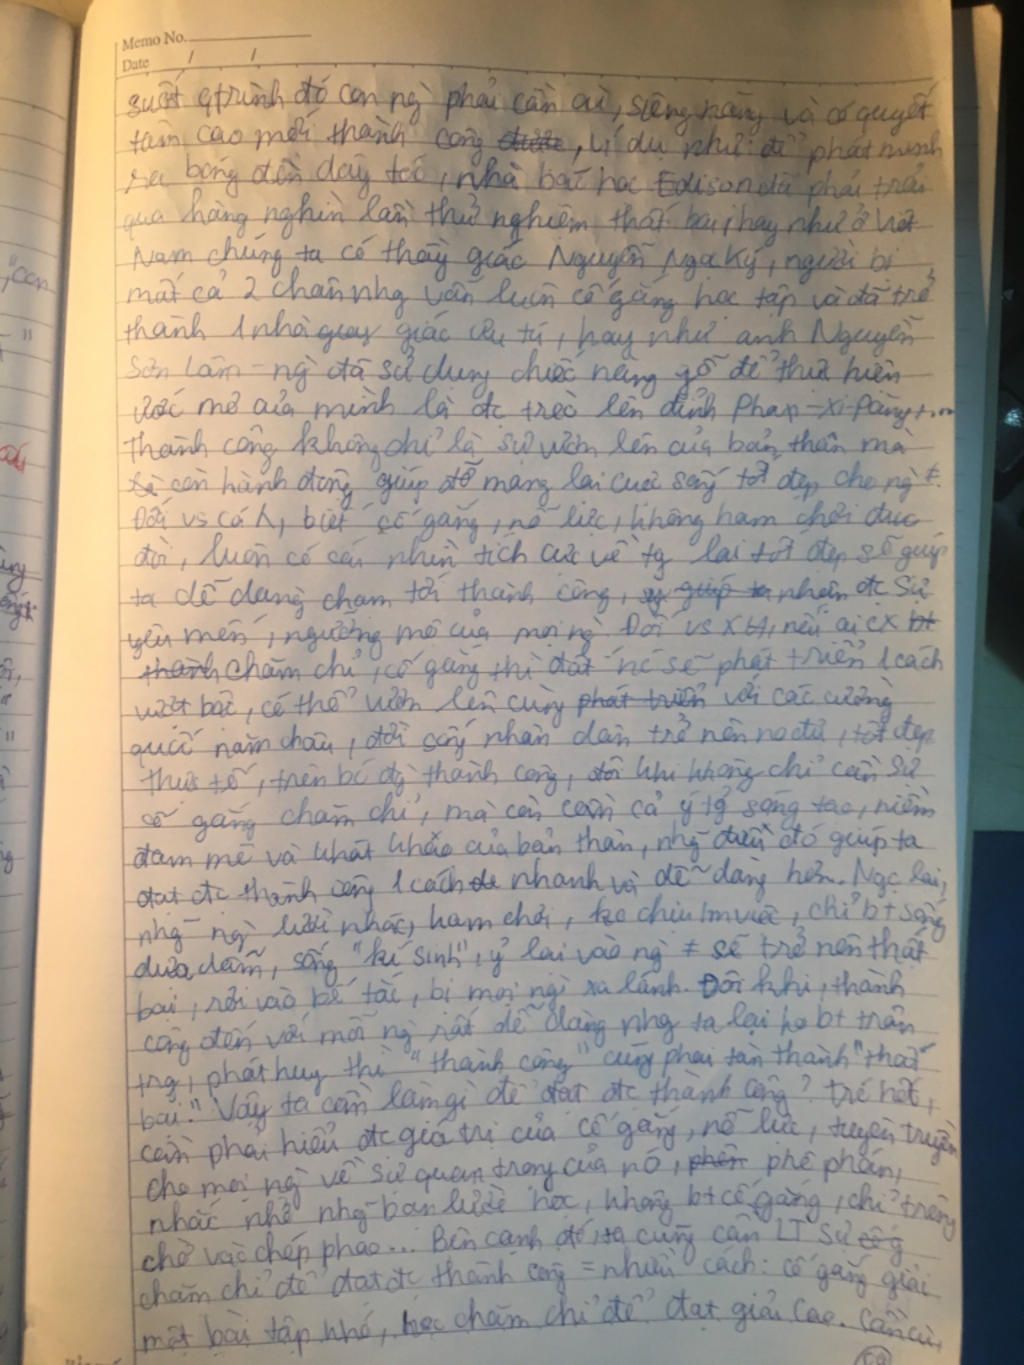 Memo No.
Date / /
suốt qtrình đó con ng` phải cần cù, siêng năng và có quyết
tâm cao mới thành công được, ví dụ như: để phát minh
ra bóng đèn dây tóc, nhà bác học Edison đã phải trải
qua hàng nghìn lần thử nghiệm thất bại, hay như ở Việt
Nam chúng ta có thầy giáo Nguyễn Ngọc Ký, người bị
mất cả 2 chân nhg vẫn luôn cố gắng học tập và đã trở
thành 1 nhà giáo ưu tú, hay như anh Nguyễn
Sơn Lâm - ng` đã sử dụng chiếc nạng gỗ để thực hiện
ước mơ của mình là đc trèo lên đỉnh Phan-xi-păng
thành công không chỉ là sự vươn lên của bản thân mà
còn hành động giúp đỡ mang lại cuộc sống tốt đẹp cho ng` ≠.
Đối vs cá, biết cố gắng, nỗ lực, không ham chơi đua
đòi, luôn có cái nhìn tích cực về tg lai tốt đẹp sẽ giúp
ta dễ dàng chạm tới thành công, giúp ta nhận đc sự
yêu mến, ngưỡng mộ của mọi ng`. Đối vs XH, nếu ai cx bt
thành chăm chỉ, cố gắng thì đất nc sẽ phát triển 1 cách
vượt bậc, có thể vươn lên cùng phát triển với các cường
quốc năm châu, đời sống nhân dân trở nên no đủ, tốt đẹp
Thực tế, trên bc đg thành công, đôi khi không chỉ cần sự
cố gắng chăm chỉ, mà còn cần cả ý tg sáng tạo, niềm
đam mê và khát khao của bản thân, nhg~ điều đó giúp ta
đạt đc thành công 1 cách nhanh và dễ dàng hơn. Ngc lại,
nhg~ ng` lười nhác, ham chơi, ko chịu lm việc, chỉ bt sống
dựa dẫm, sống "kí sinh", ỷ lại vào ng` ≠ sẽ trở nên thất
bại, rơi vào bế tắc, bị mọi ng` xa lánh. Đôi khi, thành
công đến với mỗi ng` rất dễ dàng nhg ta lại ko bt trân
trọg, phát huy thì "thành công" cũng phai tàn thành "thất
bại". Vậy ta cần làm gì để đạt đc thành công? Trc hết,
cần phải hiểu đc giá trị của cố gắng, nỗ lực, tuyên truyền
cho mọi ng` về sự quan trọng của nó, phê phán,
nhắc nhở nhg~ bạn lười học, không bt cố gắng, chỉ trông
chờ vào chép phao... Bên cạnh đó, ta cũng cần LT sự cố g
chăm chỉ để đạt đc thành công = nhiều cách: cố gắng giải
một bài tập khó, học chăm chỉ để đạt giải cao. Cần cù,